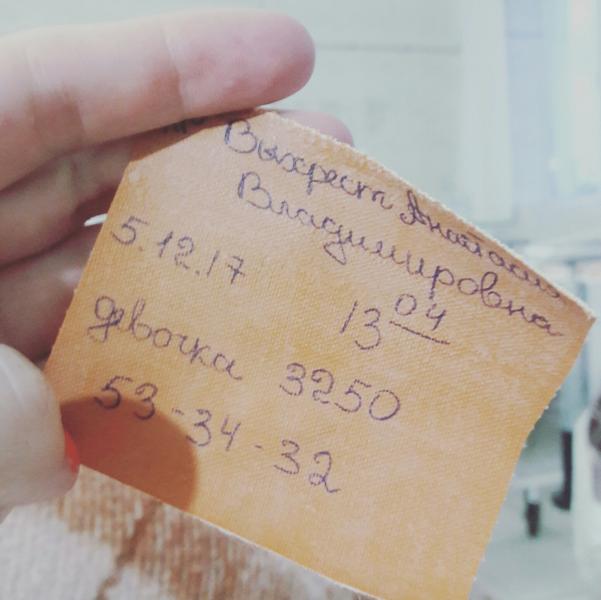 Выхрест Анастасия
Владимировна
5.12.17
13 04
девочка 3250
53-34-32